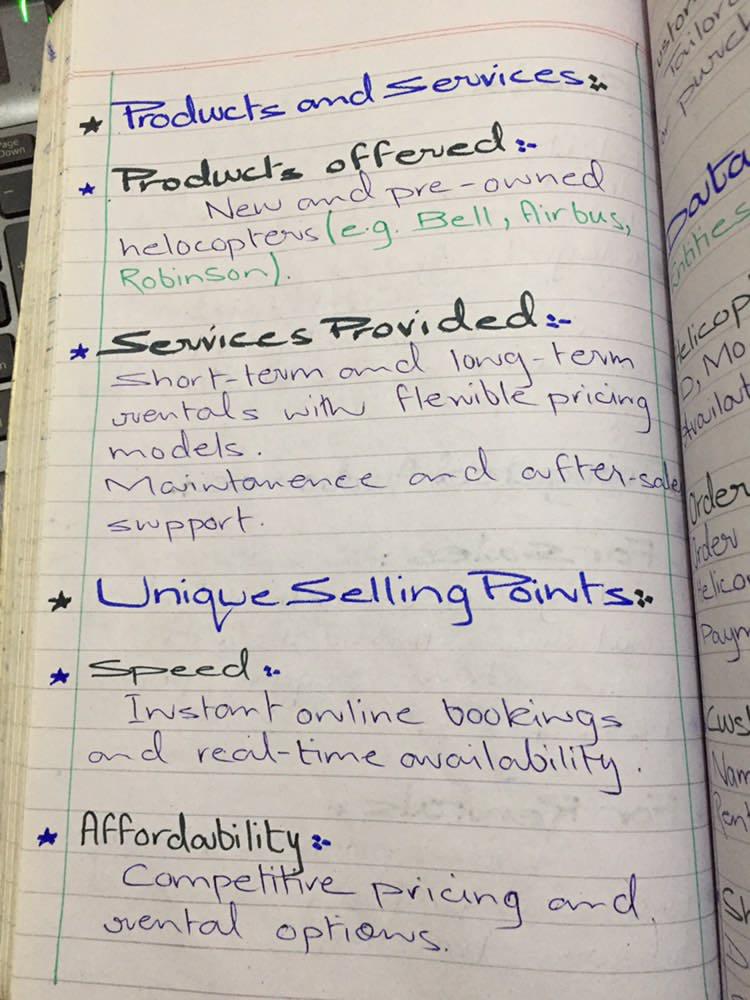 ★ Products and Services:-
★ Products offered:-
New and pre-owned
helocopters (e.g. Bell, Airbus,
Robinson).
★ Services Provided:-
Short-term and long-term
rentals with flexible pricing
models.
Maintanence and after-sale
support.
★ Unique Selling Points:-
★ Speed:-
Instant online bookings
and real-time availability.
★ Affordability:-
Competitive pricing and
rental options.
Data
Entities
Order
Page
Down